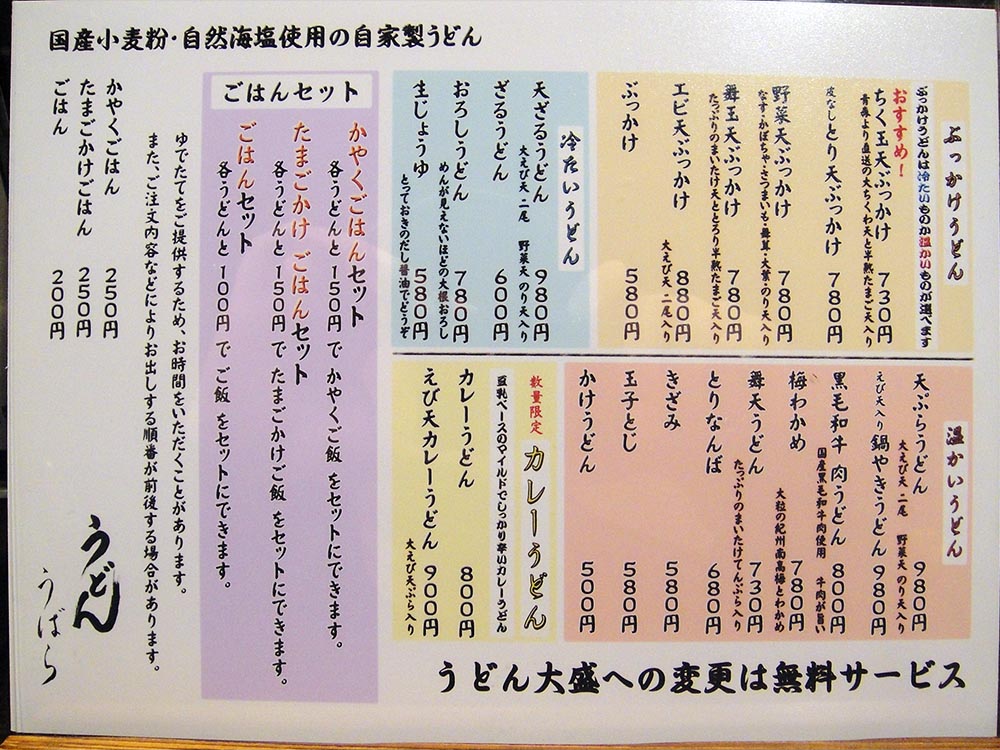 国産小麦粉・自然海塩使用の自家製うどん
ぶっかけうどん
ぶっかけうどんは冷たいものか温かいものが選べます
おすすめ！
ちく玉天ぶっかけ 730円
青森より直送の大ちくわ天と半熟たまご天入り
皮なしとり天ぶっかけ 780円
野菜天ぶっかけ 780円
なす・かぼちゃ・さつまいも・舞茸・大葉・のり天入り
舞玉天ぶっかけ 780円
たっぷりのまいたけ天ととろり半熟たまご天入り
エビ天ぶっかけ 880円
大えび天 二尾入り
ぶっかけ 580円
冷たいうどん
天ざるうどん 980円
大えび天 二尾 野菜天 のり天入り
ざるうどん 600円
おろしうどん 780円
めんが見えないほどの大根おろし
生じょうゆ 580円
とっておきのだし醤油でどうぞ
温かいうどん
天ぷらうどん 980円
大えび天 二尾 野菜天 のり天入り
えび天入り 鍋やきうどん 980円
黒毛和牛 肉うどん 800円
国産黒毛和牛肉使用 牛肉が旨い
梅わかめ 780円
大粒の紀州南高梅とわかめ
舞天うどん 730円
たっぷりのまいたけてんぷら入り
とりなんば 680円
きざみ 580円
玉子とじ 580円
かけうどん 500円
数量限定 カレーうどん
豆乳ベースのマイルドでしっかり辛いカレーうどん
カレーうどん 800円
えび天カレーうどん 900円
大えび天ぷら入り
ごはんセット
かやくごはんセット
各うどんと150円で かやくご飯 をセットにできます。
たまごかけ ごはんセット
各うどんと150円で たまごかけご飯 をセットにできます。
ごはんセット
各うどんと100円で ご飯 をセットにできます。
ゆでたてをご提供するため、お時間をいただくことがあります。
また、ご注文内容などによりお出しする順番が前後する場合があります。
かやくごはん 250円
たまごかけごはん 250円
ごはん 200円
うどん
うばら
うどん大盛への変更は無料サービス